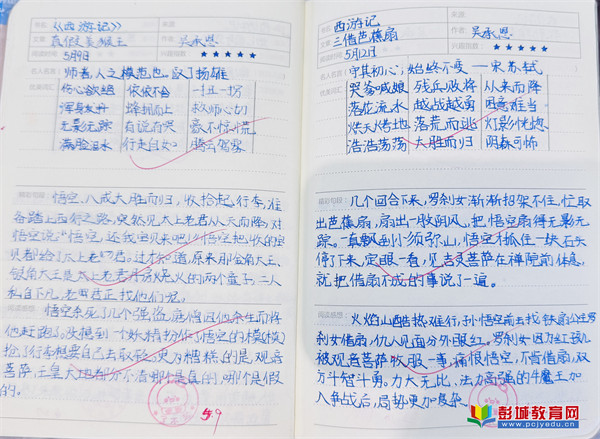 《西游记》
真假美猴王 吴承恩
5月9日 ★★★★★
师者,人之模范也。
伤心欲绝 依依不舍 一扭一拐
浑身发抖 蜂拥而上 救师心切
无影无踪 有说有笑 毫不惊慌
满脸泪水 行走自如 腾云驾雾
精彩句段:
悟空、八戒大胜而归,收拾起行李,准
备踏上西行之路,突然见太上老君从天而降,对
悟空说:“悟空,还我宝贝来吧!”悟空把收的宝
贝都给了太上老君。过才知道,原来那金角大王、
银角大王是太上老君看炉火的两个童子,二人
私自下凡,老君正找他们呢。
阅读感想:
悟空杀死了几个强盗,唐僧因他杀生而将
他赶跑了。没想到一个妖精扮作了悟空的模样
抢了行李想要自己去取经,更为糟糕的是,观音
菩萨、玉皇大帝都分不清哪个是真的,哪个是假
的。
5.9
西游记
三借芭蕉扇 吴承恩
5月12日 ★★★★★
守其初心,始终不变 —宋 苏轼
哭爹喊娘 残兵败将 从天而降
落花流水 越战越勇 困意难当
烘天烤地 落荒而逃 灯影恍惚
浩浩荡荡 大胜而归 阴森可怖
精彩句段:
几个回合下来,罗刹女渐渐招架不住,忙取
出芭蕉扇,扇出一股阴风,把悟空扇得无影无
踪。一直飘到小须弥山,悟空抓住一块石头
停了下来,定眼一看,见吉灵菩萨在禅院前休息,
就把借扇不成的事说了一遍。
阅读感想:
火焰山酷热难行,孙悟空前去找铁扇公主罗
刹女借扇,仇人见面分外眼红。罗刹女因为红孩儿
被观音菩萨收服一事,痛恨悟空,不肯借扇,双
方斗智斗勇。力大无比,法力高强的牛魔王加
入争战后,局势更加复杂。
彭城教育网
www.pcjyedu.cn